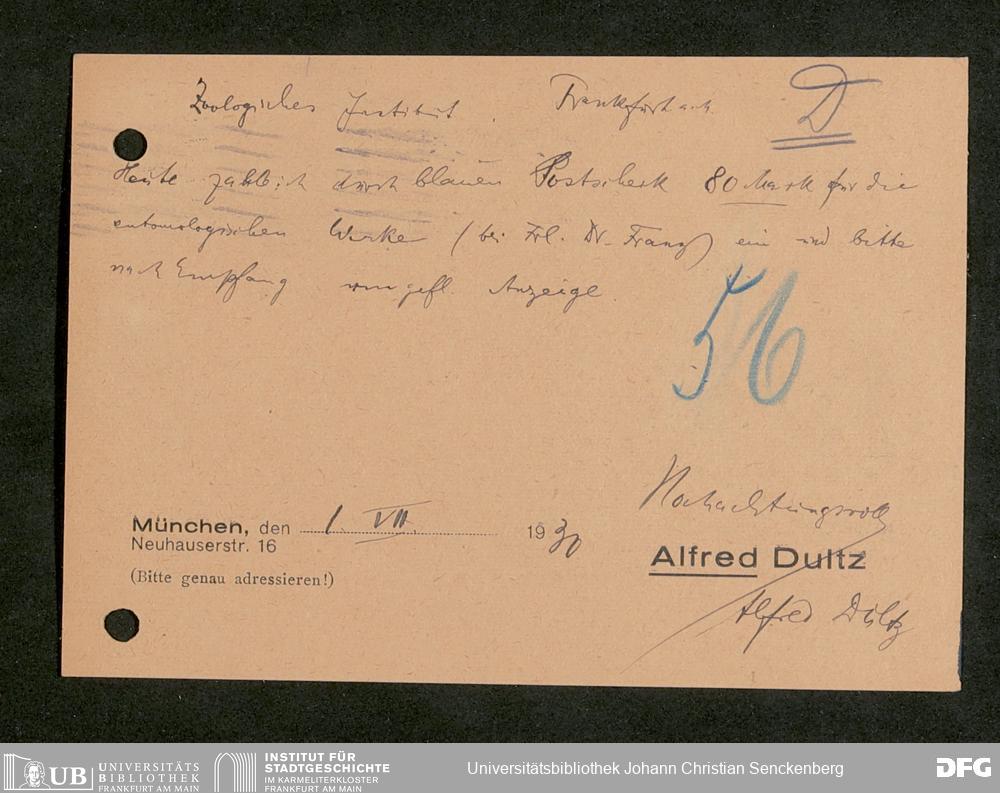 Zoologisches Institut, Frankfurt a.M.
D
Heute zahlte ich durch blauen Postscheck 80 Mark für die
entomologischen Werke (bei Frl. Dr. Franz) ein und bitte
nach Empfang um gefl. Anzeige.
56
Hochachtungsvoll
München, den 1. VII. 1930
Neuhauserstr. 16
Alfred Dultz
(Bitte genau adressieren!)
Alfred Dultz
UB UNIVERSITÄTS
BIBLIOTHEK
FRANKFURT AM MAIN
INSTITUT FÜR
STADTGESCHICHTE
IM KARMELITERKLOSTER
FRANKFURT AM MAIN
Universitätsbibliothek Johann Christian Senckenberg
DFG